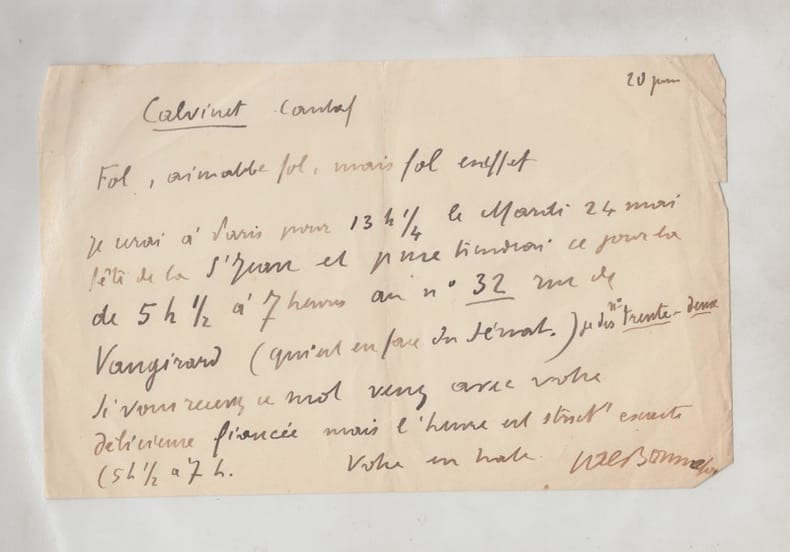 20 juin
Calvinet Cantal
Fol, aimable fol, mais fol en effet
je serai à Paris pour 13 h 1/4 le Mardi 24 mai
fête de la St Jean et je me tiendrai ce jour là
de 5 h 1/2 à 7 heures au n° 32 rue de
Vaugirard (qui est en face du Sénat.) je dis n° trente-deux
Si vous recevez ce mot venez avec votre
délicieuse fiancée mais l'heure est strictt exacte
(5h 1/2 à 7 h. Votre en hate